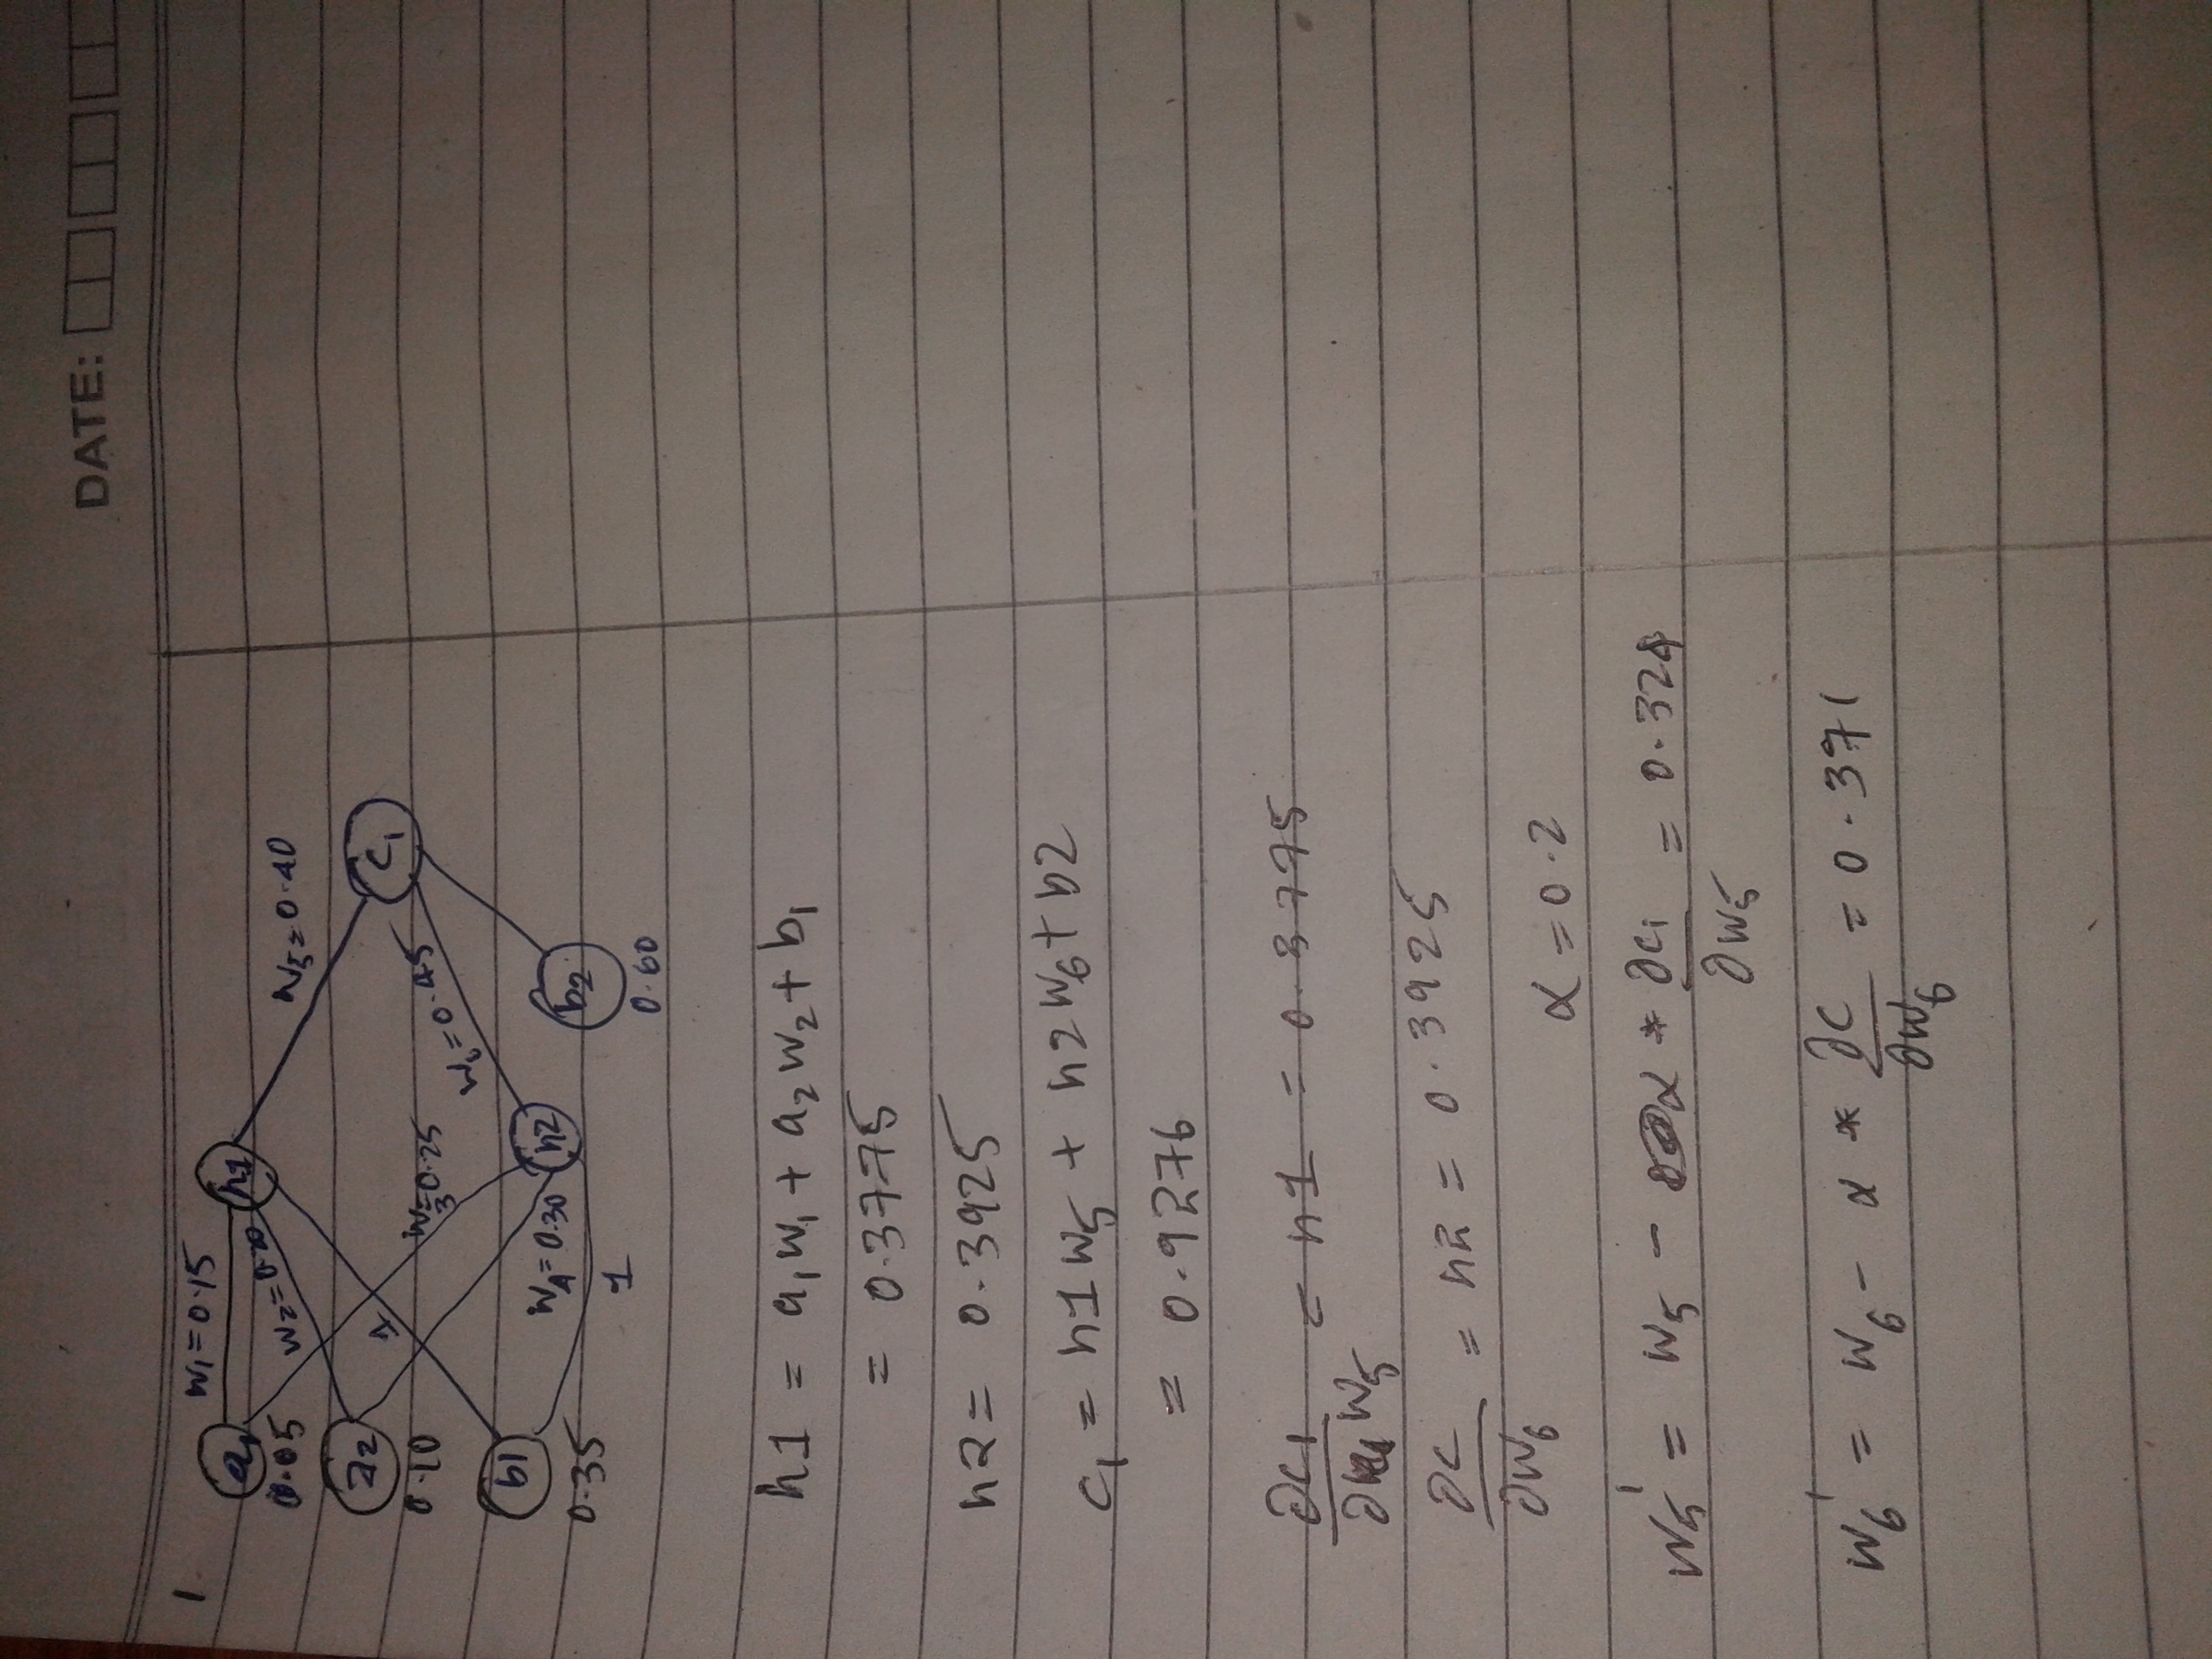 DATE:
1
w₁=0.15
a₁
h1
0.05
w₂=0.20
w₅=0.40
a2
c₁
0.10
1
w₃=0.25
w₆=0.45
b1
w₄=0.30
h2
b2
0.35
1
0.60
h1 = a₁w₁ + a₂w₂ + b₁
= 0.3775
h2 = 0.3925
c₁ = h1w₅ + h2w₆ + b2
= 0.9276
∂c₁/∂w₅ = h1 = 0.3775
∂c/∂w₆ = h2 = 0.3925
α = 0.2
w₅' = w₅ - α * ∂c₁/∂w₅ = 0.324
w₆' = w₆ - α * ∂c/∂w₆ = 0.371